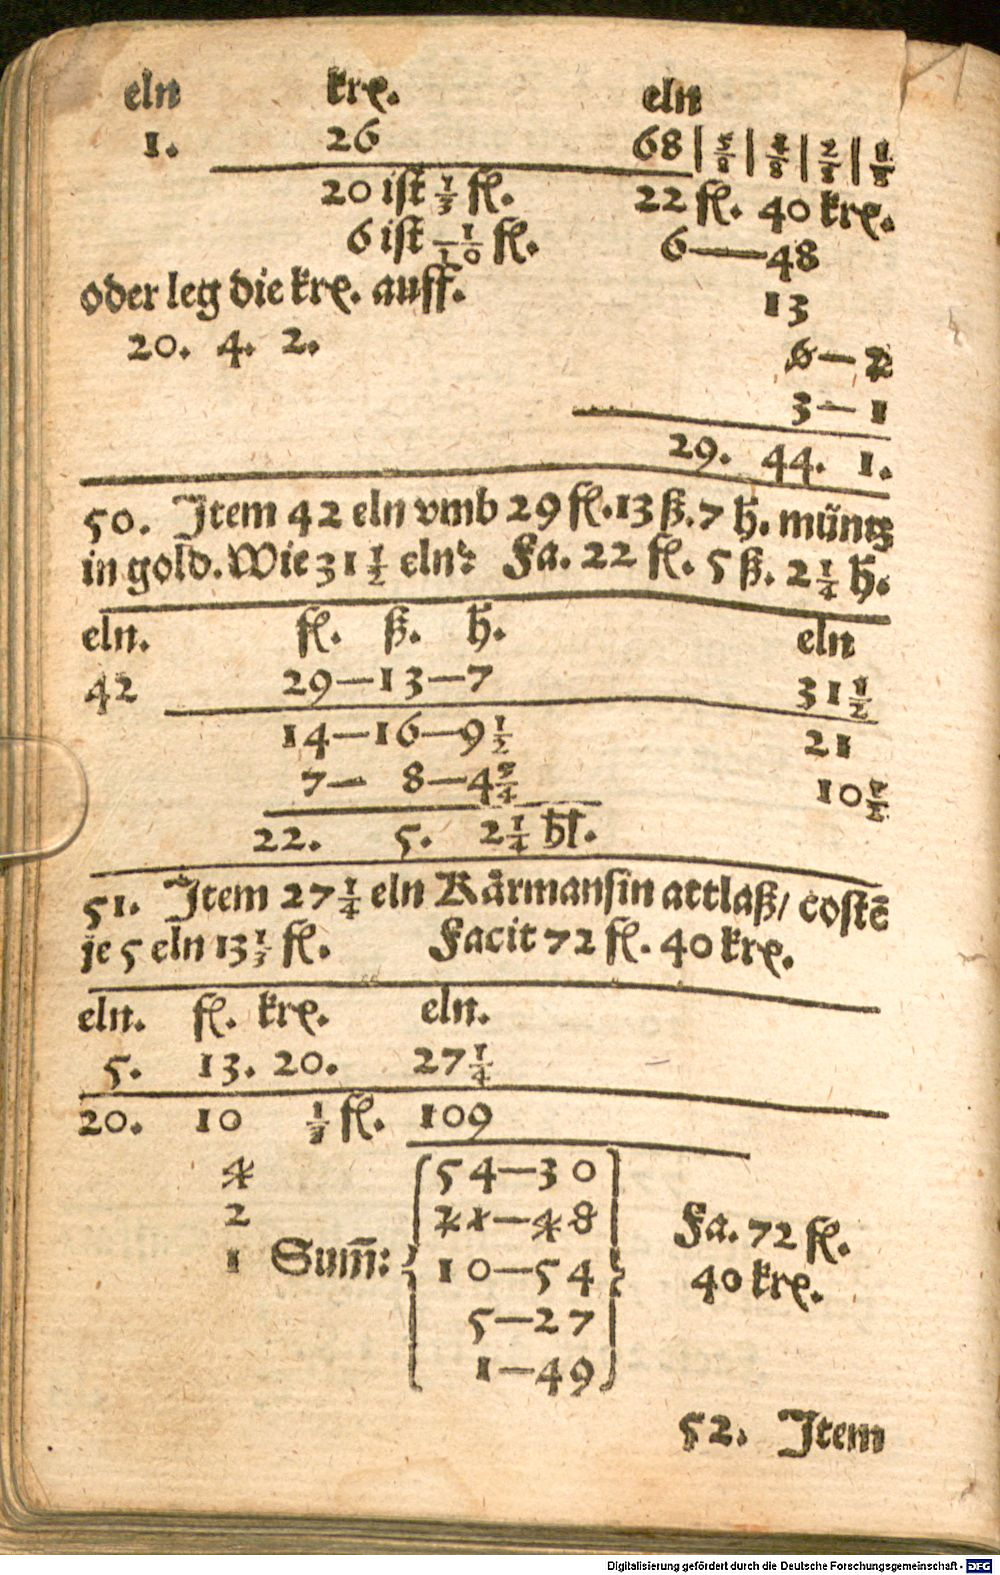 eln krę. eln
1. 26 68 | 5/8 | 4/8 | 2/8 | 1/8
20 ist 1/3 fl. 22 fl. 40 krę.
6 ist 1/10 fl. 6—48
oder leg die krę. auff. 13
20. 4. 2. 6—2
3—1
29. 44. 1.
50. Item 42 eln vmb 29 fl. 13 ß. 7 h. müntz
in gold. Wie 31 1/2 eln? Fa. 22 fl. 5 ß. 2 1/4 h.
eln. fl. ß. h. eln
42 29—13—7 31 1/2
14—16—9 1/2 21
7— 8—4 3/4 10 1/2
22. 5. 2 1/4 hl.
51. Item 27 1/4 eln Kårmansin attlaß/ costē
je 5 eln 13 1/3 fl. Facit 72 fl. 40 krę.
eln. fl. krę. eln.
5. 13. 20. 27 1/4
20. 10 1/3 fl. 109
4 54—30
2 21—48 Fa. 72 fl.
1 Sum̄: 10—54 40 krę.
5—27
1—49
52. Item
Digitalisierung gefördert durch die Deutsche Forschungsgemeinschaft - DFG